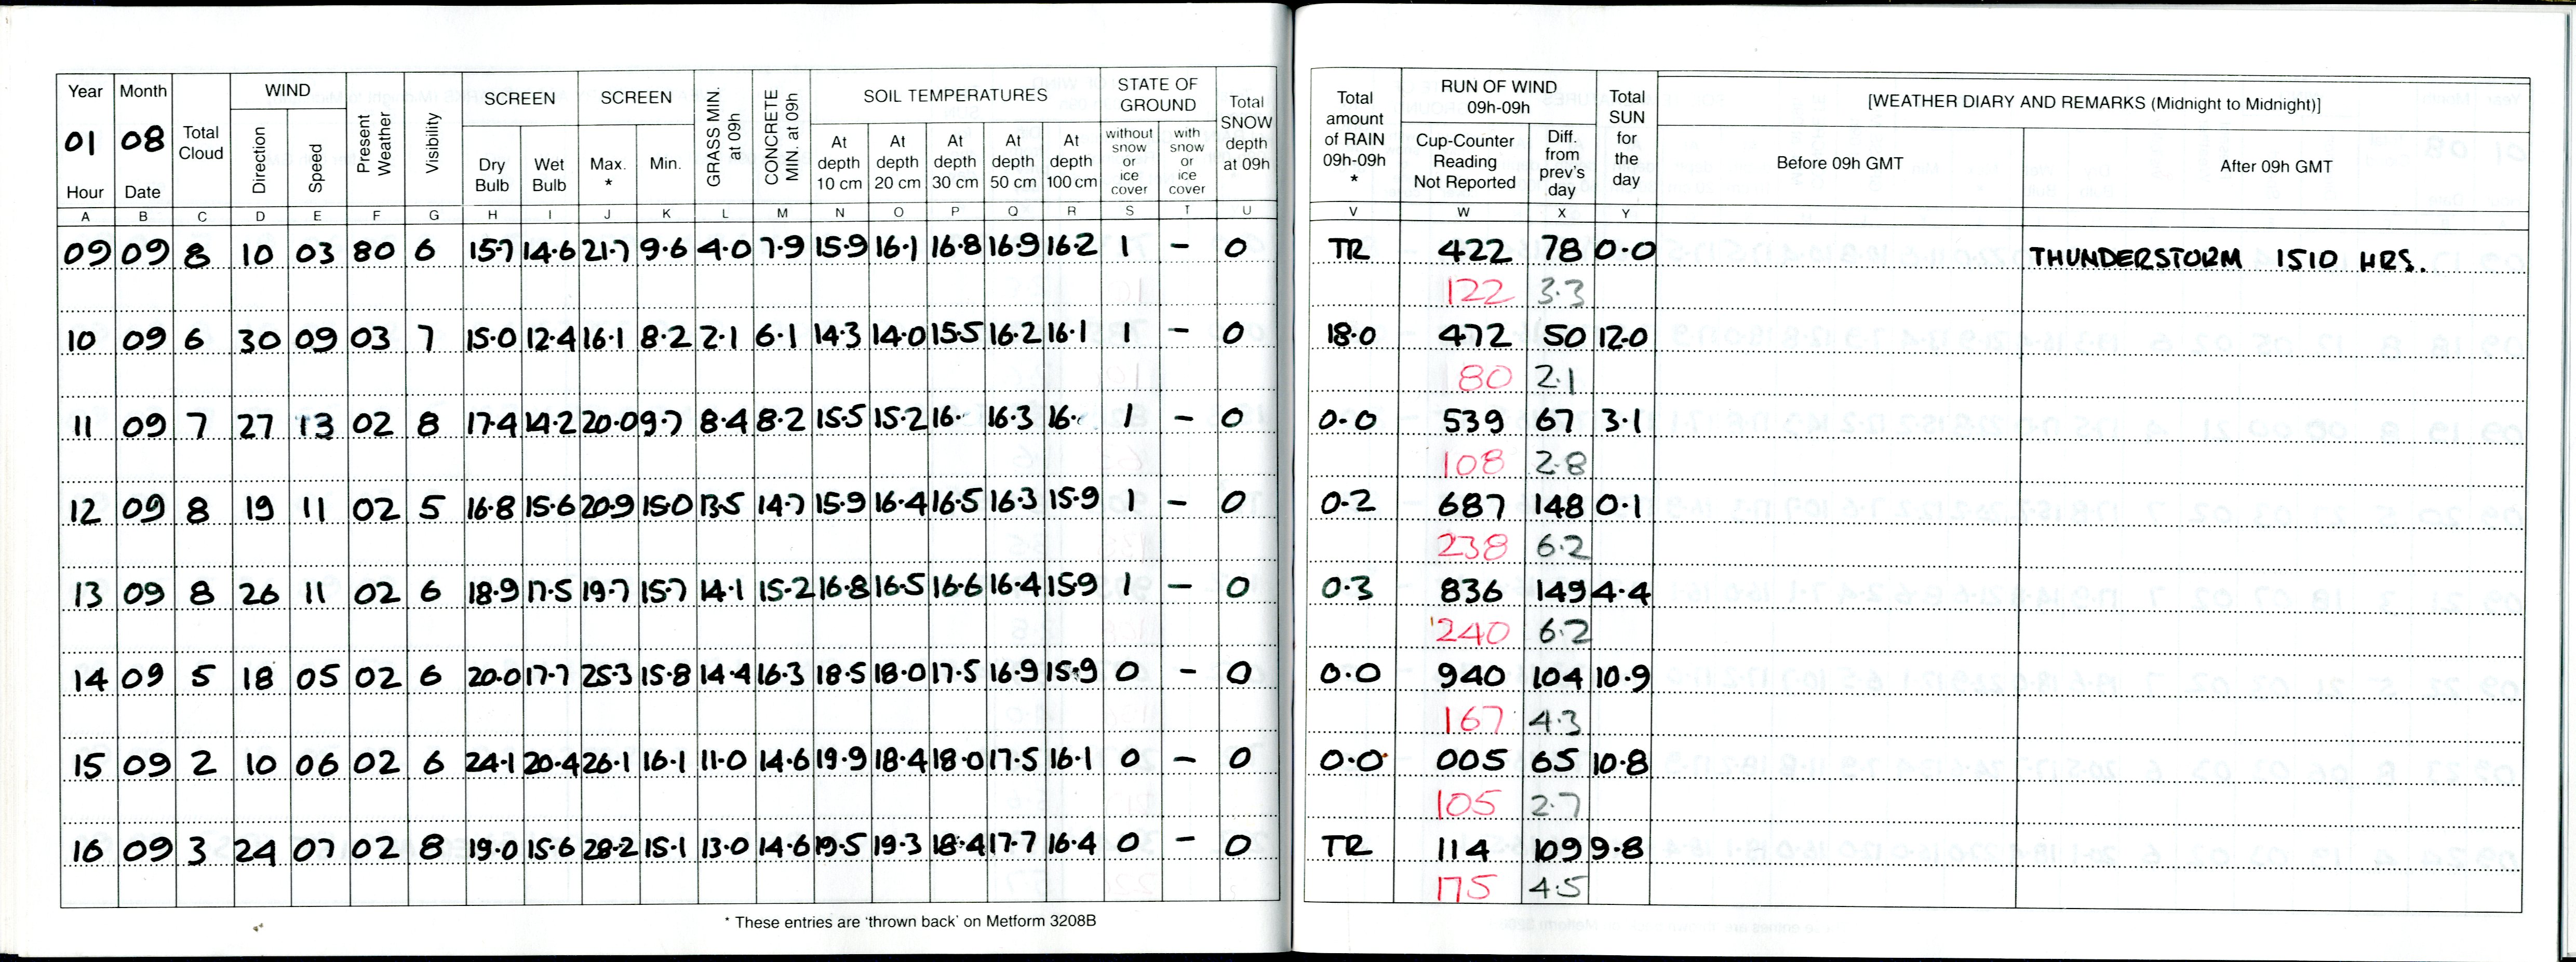 Year Month Total Cloud WIND Present Weather Visibility SCREEN SCREEN GRASS MIN. at 09h CONCRETE MIN. at 09h SOIL TEMPERATURES STATE OF GROUND Total SNOW depth at 09h Total amount of RAIN 09h-09h * RUN OF WIND 09h-09h Total SUN for the day [WEATHER DIARY AND REMARKS (Midnight to Midnight)]
01 08 Direction Speed Dry Bulb Wet Bulb Max. * Min. At depth 10 cm At depth 20 cm At depth 30 cm At depth 50 cm At depth 100 cm without snow or ice cover with snow or ice cover Cup-Counter Reading Not Reported Diff. from prev's day Before 09h GMT After 09h GMT
Hour Date
A B C D E F G H I J K L M N O P Q R S T U V W X Y
09 09 8 10 03 80 6 15.7 14.6 21.7 9.6 4.0 7.9 15.9 16.1 16.8 16.9 16.2 1 - 0 TR 422 78 0.0 THUNDERSTORM 1510 HRS.
122 3.3
10 09 6 30 09 03 7 15.0 12.4 16.1 8.2 2.1 6.1 14.3 14.0 15.5 16.2 16.1 1 - 0 18.0 472 50 12.0
80 2.1
11 09 7 27 13 02 8 17.4 14.2 20.0 9.7 8.4 8.2 15.5 15.2 16. 16.3 16. 1 - 0 0.0 539 67 3.1
108 2.8
12 09 8 19 11 02 5 16.8 15.6 20.9 15.0 13.5 14.7 15.9 16.4 16.5 16.3 15.9 1 - 0 0.2 687 148 0.1
238 6.2
13 09 8 26 11 02 6 18.9 17.5 19.7 15.7 14.1 15.2 16.8 16.5 16.6 16.4 15.9 1 - 0 0.3 836 149 4.4
240 6.2
14 09 5 18 05 02 6 20.0 17.7 25.3 15.8 14.4 16.3 18.5 18.0 17.5 16.9 15.9 0 - 0 0.0 940 104 10.9
167 4.3
15 09 2 10 06 02 6 24.1 20.4 26.1 16.1 11.0 14.6 19.9 18.4 18.0 17.5 16.1 0 - 0 0.0 005 65 10.8
105 2.7
16 09 3 24 07 02 8 19.0 15.6 28.2 15.1 13.0 14.6 19.5 19.3 18.4 17.7 16.4 0 - 0 TR 114 109 9.8
175 4.5
* These entries are 'thrown back' on Metform 3208B